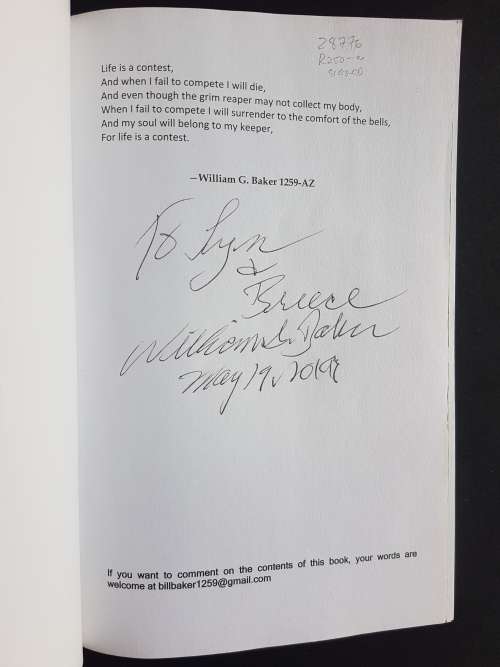 28776
R250-00
SIGNED
Life is a contest,
And when I fail to compete I will die,
And even though the grim reaper may not collect my body,
When I fail to compete I will surrender to the comfort of the bells,
And my soul will belong to my keeper,
For life is a contest.
—William G. Baker 1259-AZ
To Lyn
&
Bruce
William G. Baker
May 19, 2019
If you want to comment on the contents of this book, your words are
welcome at billbaker1259@gmail.com